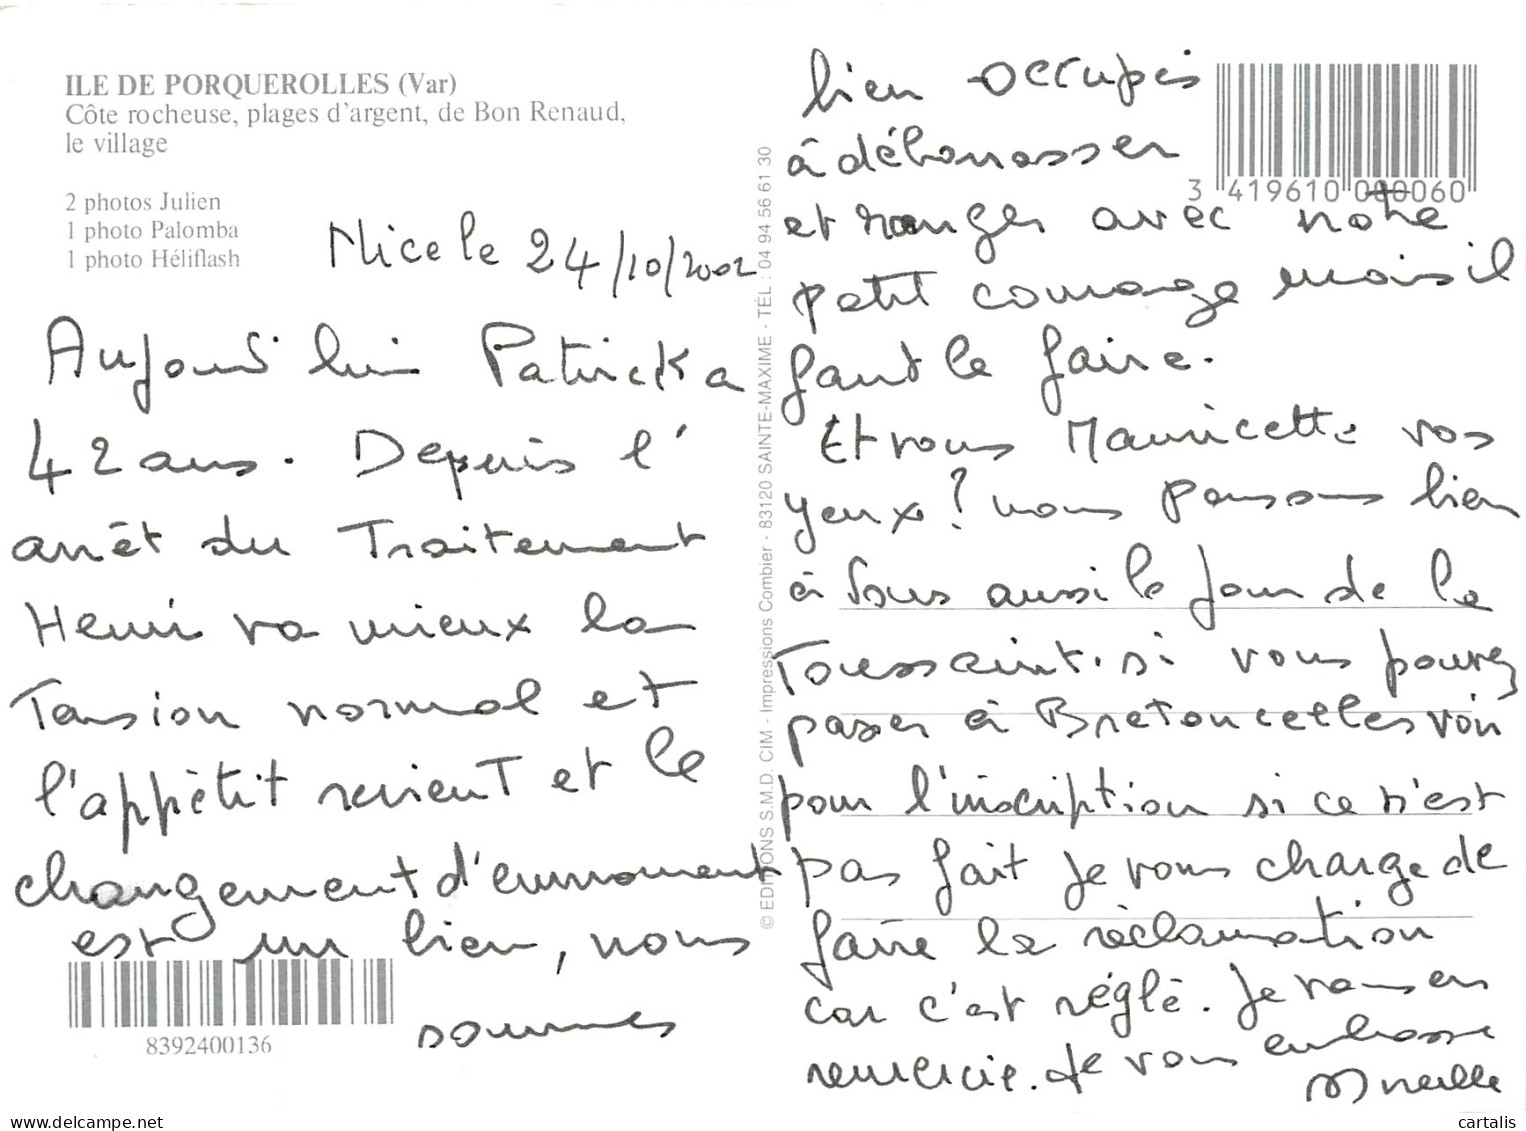 ILE DE PORQUEROLLES (Var)
Côte rocheuse, plages d'argent, de Bon Renaud,
le village
2 photos Julien
1 photo Palomba
1 photo Héliflash
Nice le 24/10/2002
Aujourd'hui Patrick a
42 ans. Depuis l'
arrêt du Traitement
Henri va mieux la
Tension normal et
l'appétit revient et le
changement d'environnement
est un bien, nous
sommes
8392400136
© EDITIONS S.M.D. CIM - Impressions Combier - 83120 SAINTE-MAXIME - TÉL : 04 94 56 61 30
3 419610 000060
bien occupés
à débarrasser
et ranger avec notre
petit courage mais il
faut le faire.
Et vous Mauricette vos
yeux ? nous pensons bien
à vous aussi le jour de la
Toussaint. si vous pouvez
passer à Bretoncelles voir
pour l'inscription si ce n'est
pas fait je vous charge de
faire la réclamation
car c'est réglé. Je vous en
remercie. Je vous embrasse
Mireille
cartalis